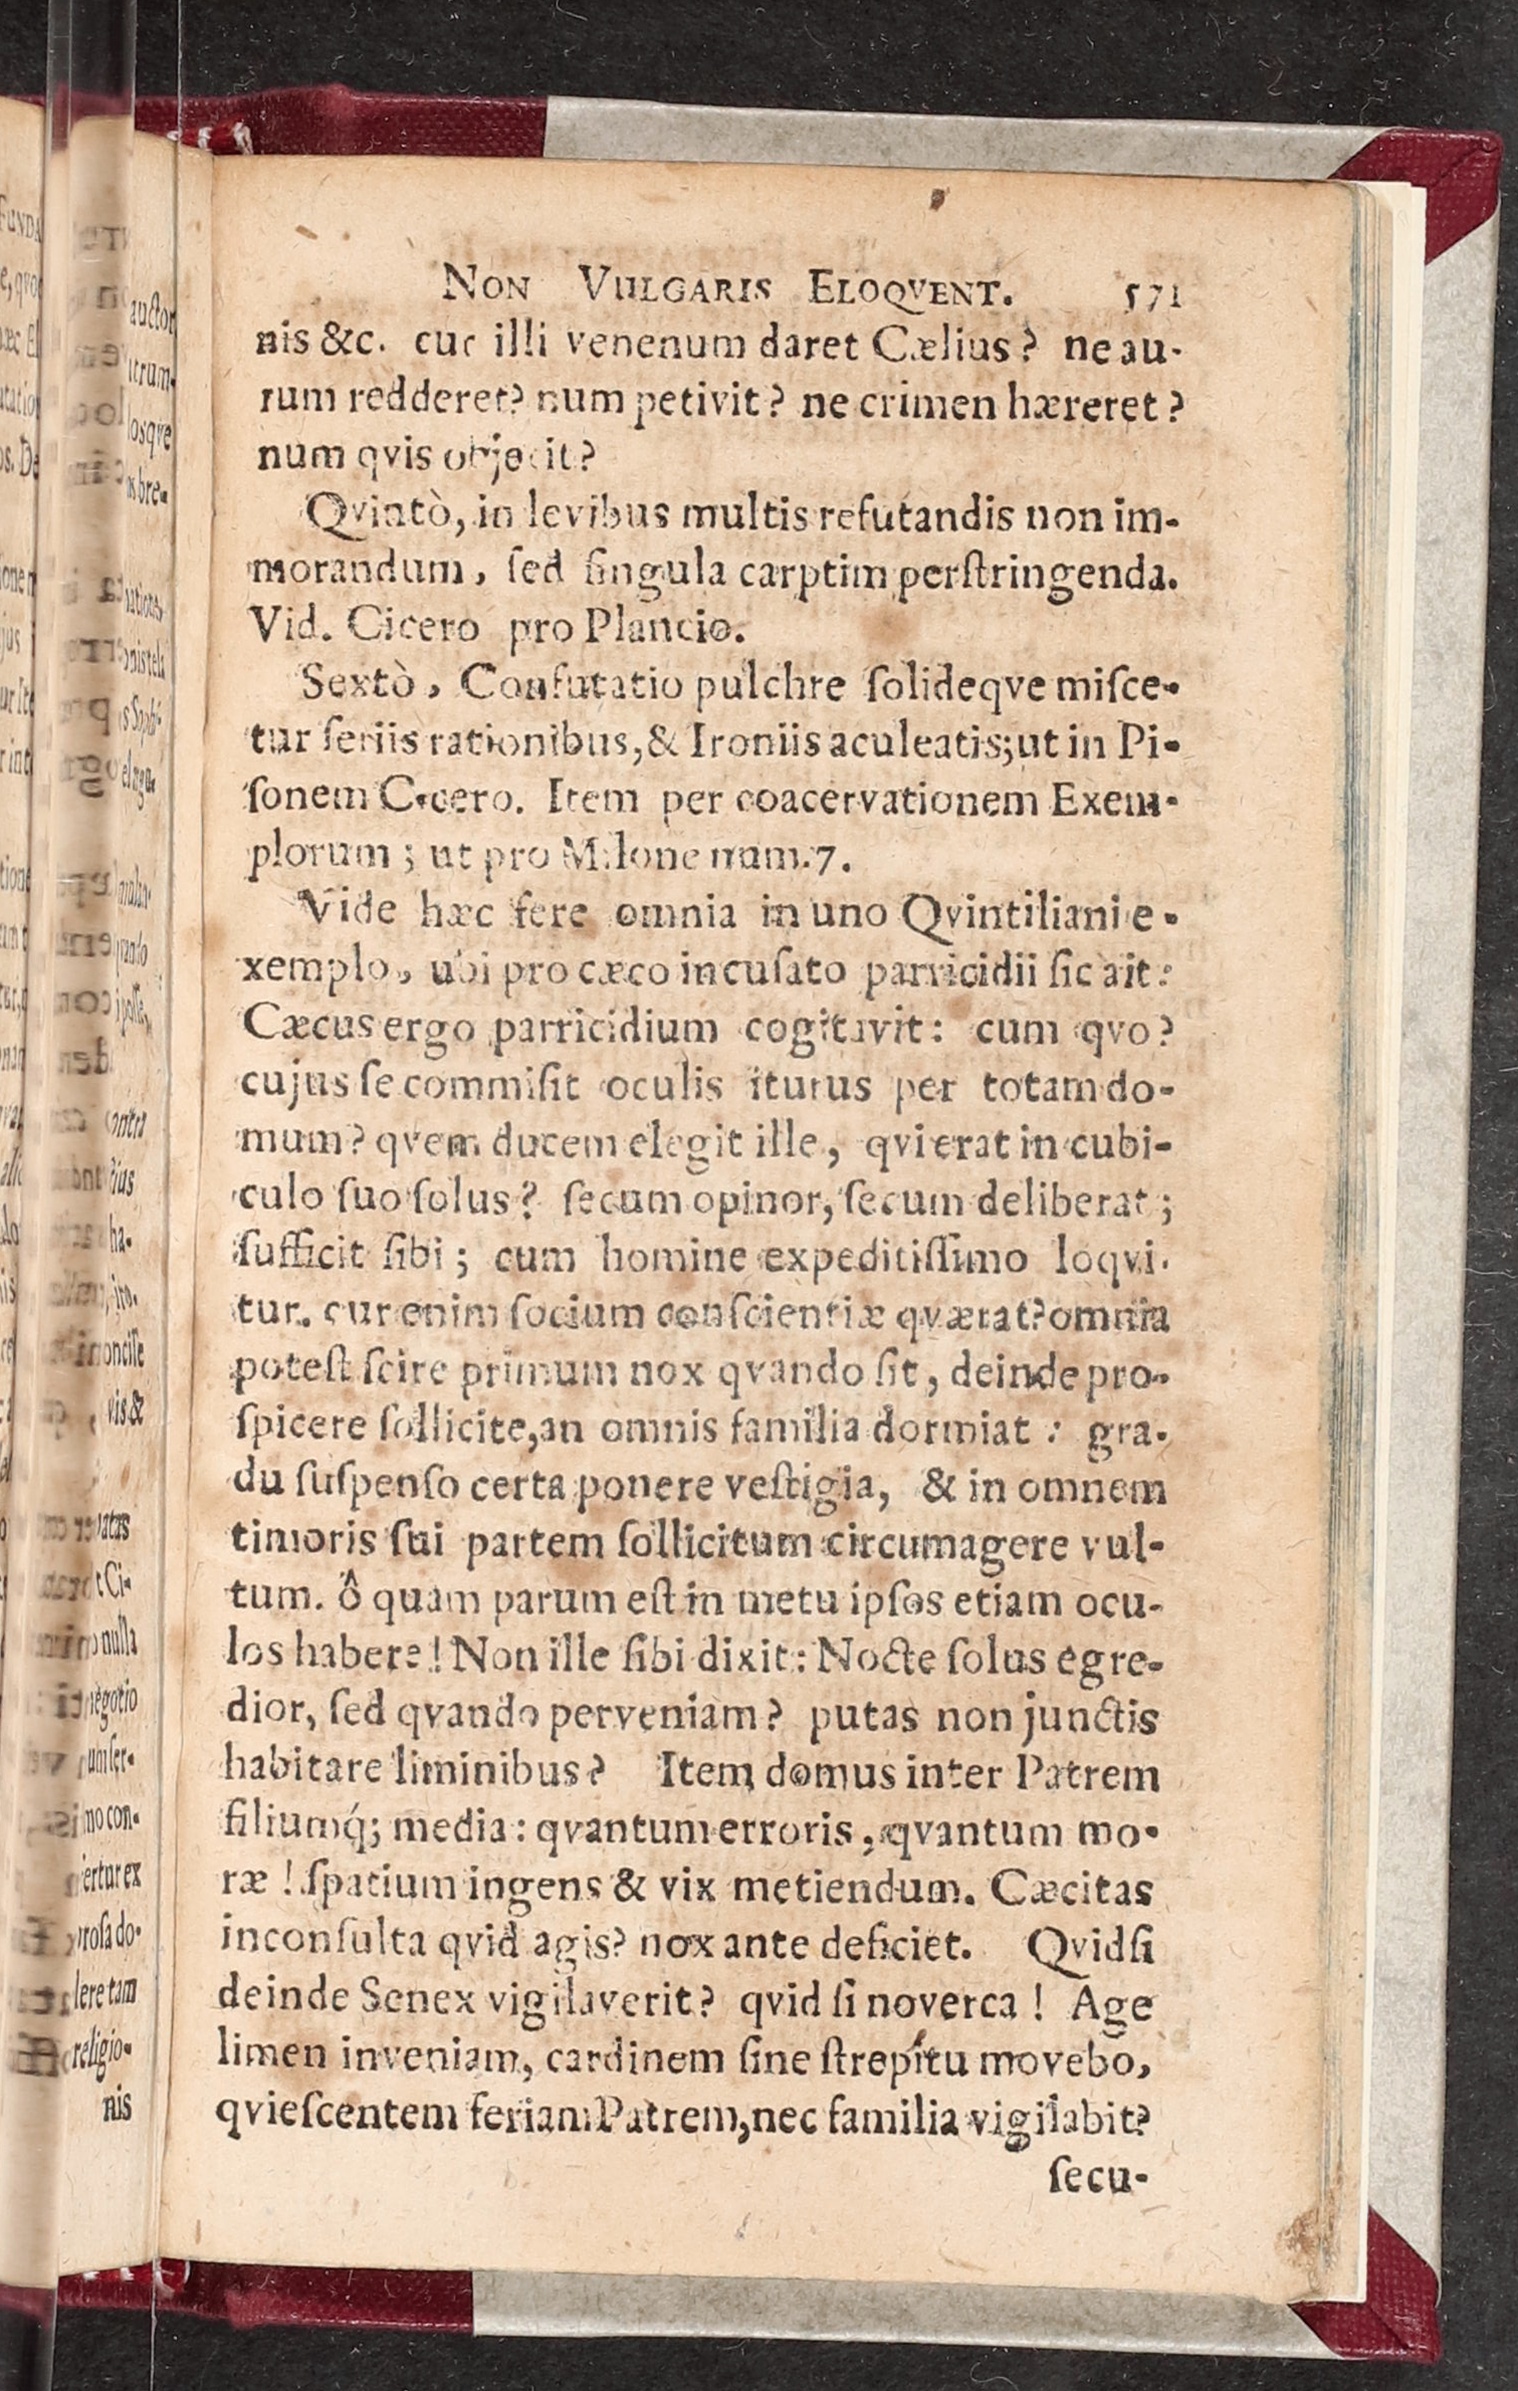 NON VULGARIS ELOQVENT. 571
nis &c. cur illi venenum daret Cælius? ne au-
rum redderet? num petivit? ne crimen hæreret?
num qvis objecit?
Qvintò, in levibus multis refutandis non im-
morandum, ſed ſingula carptim perſtringenda.
Vid. Cicero pro Plancio.
Sextò, Confutatio pulchre ſolideqve miſce-
tur ſeriis rationibus, & Ironiis aculeatis; ut in Pi-
ſonem Cicero. Item per coacervationem Exem-
plorum; ut pro Milone num. 7.
Vide hæc fere omnia in uno Qvintiliani e-
xemplo, ubi pro cæco incuſato parricidii ſic ait:
Cæcus ergo parricidium cogitavit: cum qvo?
cujus ſe commiſit oculis iturus per totam do-
mum? qvem ducem elegit ille, qvi erat in cubi-
culo ſuo ſolus? ſecum opinor, ſecum deliberat;
ſufficit ſibi; cum homine expeditiſſimo loqvi-
tur. cur enim ſocium conſcientiæ qværat? omnia
poteſt ſcire primum nox qvando ſit, deinde pro-
ſpicere ſollicite, an omnis familia dormiat: gra-
du ſuſpenſo certa ponere veſtigia, & in omnem
timoris ſui partem ſollicitum circumagere vul-
tum. ô quam parum eſt in metu ipſos etiam ocu-
los habere! Non ille ſibi dixit: Nocte ſolus egre-
dior, ſed qvando perveniam? putas non junctis
habitare liminibus? Item domus inter Patrem
filiumq́; media: qvantum erroris, qvantum mo-
ræ! ſpatium ingens & vix metiendum. Cæcitas
inconſulta qvid agis? nox ante deficiet. Qvid ſi
deinde Senex vigilaverit? qvid ſi noverca! Age
limen inveniam, cardinem ſine ſtrepitu movebo,
qvieſcentem feriam Patrem, nec familia vigilabit?
ſecu-